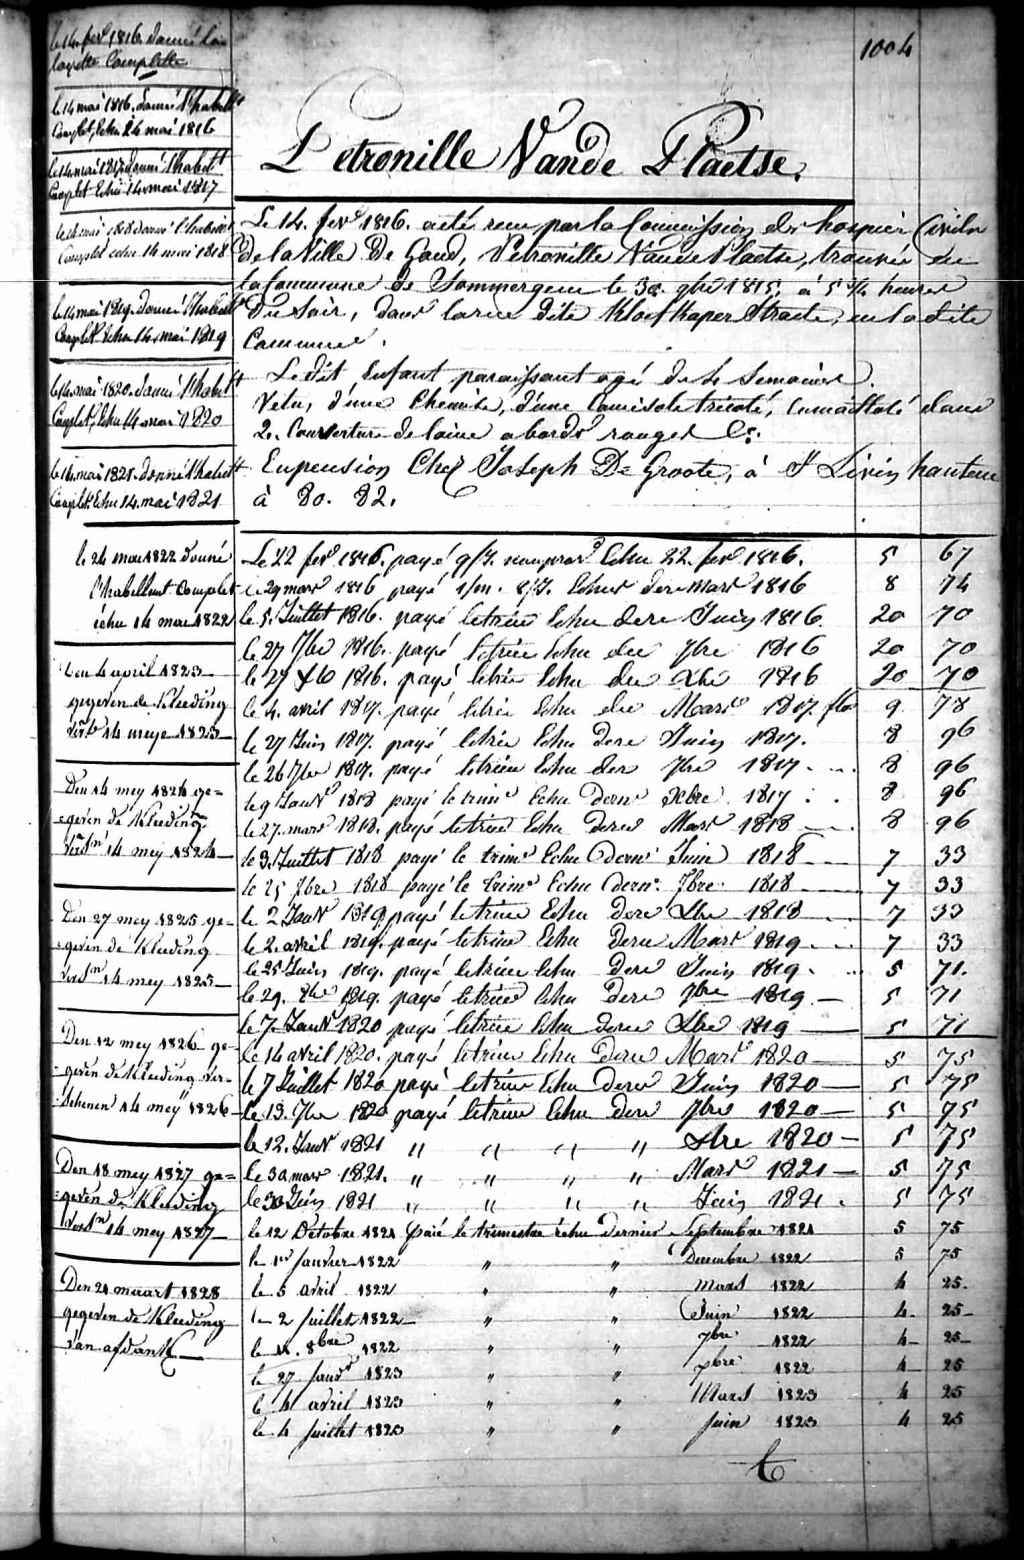 1004
Petronille Vande Plaetse.
le 14. fevr 1816. donné la
layette Complette
le 14 mai 1816. donné l'habillt
Complet, Echu 14 mai 1816
le 14 mai 1817 donné l'habillt
Complet Echu 14 mai 1817
le 14 mai 1818 donné l'habillt
Complet echu 14 mai 1818
le 14 mai 1819. donné l'habillt
Complet Echu 14 mai 1819
le 14 mai 1820. donné l'habillt
Complet, Echu 14 mai 1820
le 14 mai 1821. donné l'habillt
Complet. Echu 14. mai 1821
le 24 mai 1822 donné
l'habillemt Complet
échu 14 mai 1822
Den 4 april 1823
gegeven de Kleeding
verstn 14 meye 1823
Den 14 mey 1824 ge-
-geven de Kleeding
verstn 14 meij 1824
Den 27 mey 1825 ge-
-geven de Kleeding
verstn 14 mey 1825
Den 12 mey 1826 ge-
-geven de Kleeding ver-
-schenen 14 meij 1826
Den 18 mey 1827 ge-
-geven de Kleeding
verstn 14 mey 1827
Den 21 maart 1828
gegeven de Kleeding
van afdank
Le 14. fevr 1816. a eté recu par la Commission des hospices Civils
de la Ville De Gand, Petronille Vande Plaetse, trouvée sur
la Commune de Sommergem le 30. 9bre 1815, à 5 heures
Du Soir, dans la rue dite Straete, en la dite
Commune.
Le dit Enfant paraissant agé de Semaines.
Vetu, d'une Chemise, d'une Camisole tricoté, emmailloté dans
2. Couverture de laine a bords rouges &c.
En pension Chez Joseph De Groote, à St Livin hautem
à 80. 82.
Le 22 fevr 1816. payé Echu 22. fevr 1816. 5 67
Le 29 mars 1816 payé Echus der mars 1816 8 74
le 5. Juillet 1816. payé le trim Echu dern Juin 1816 20 70
le 27 7bre 1816. payé le trim Echu du 7bre 1816 20 70
le 27 Xb 1816. payé le trim Echu du Xbre 1816 20 70
le 4. avril 1817. payé le trim Echu du Mars 1817. fls 9. 78
le 27 Juin 1817. payé le trim Echu dern Juin 1817. 8 96
le 26 7bre 1817. payé le trim Echu der 7bre 1817 8 96
le 9 Janvr 1818 payé le trimr Echu dernr Xbre 1817 8 96
le 27. mars 1818. payé le trim Echu dern Mars 1818 8 96
le 3. Juillet 1818 payé le trimr Echu dernr Juin 1818 7 33
le 25 7bre 1818 payé le trimr Echu dernr 7bre 1818 7 33
le 2 Janvr 1819 payé le trim Echu dern Xbre 1818 7 33
le 2. avril 1819. payé le trim Echu dern Mars 1819 7 33
le 25 Juin 1819. payé le trim Echu dern Juin 1819. 5 71.
le 29. 8bre 1819. payé le trim Echu dern 7bre 1819 5 71
le 7. Janvr 1820 payé le trim Echu dern Xbre 1819 5 71
le 14 avril 1820. payé le trim Echu dern Mars 1820 5 75
le 7 Juillet 1820 payé le trim Echu dern Juin 1820 5 75
le 13. 7bre 1820 payé le trim Echu dern 7bre 1820 5 75
le 12. Janvr 1821 " " " " Xbre 1820 5 75
le 30 mars 1821. " " " " Mars 1821 5 75
le 30 Juin 1821 " " " " Juin 1821. 5 75
le 12 Octobre 1821 Paié le trimestre échu dernier Septembre 1821 5 75
le 1er Janvier 1822 " " Decembre 1822 5 75
le 5 avril 1822 " " mars 1822 4 25.
le 2 Juillet 1822 " " Juin 1822 4 25
le 8bre 1822 " " 7bre 1822 4 25
le 27 Janvr 1823 " " 7bre 1822 4 25
le 4 avril 1823 " " Mars 1823 4 25
le 4 Juillet 1823 " " Juin 1823 4 25